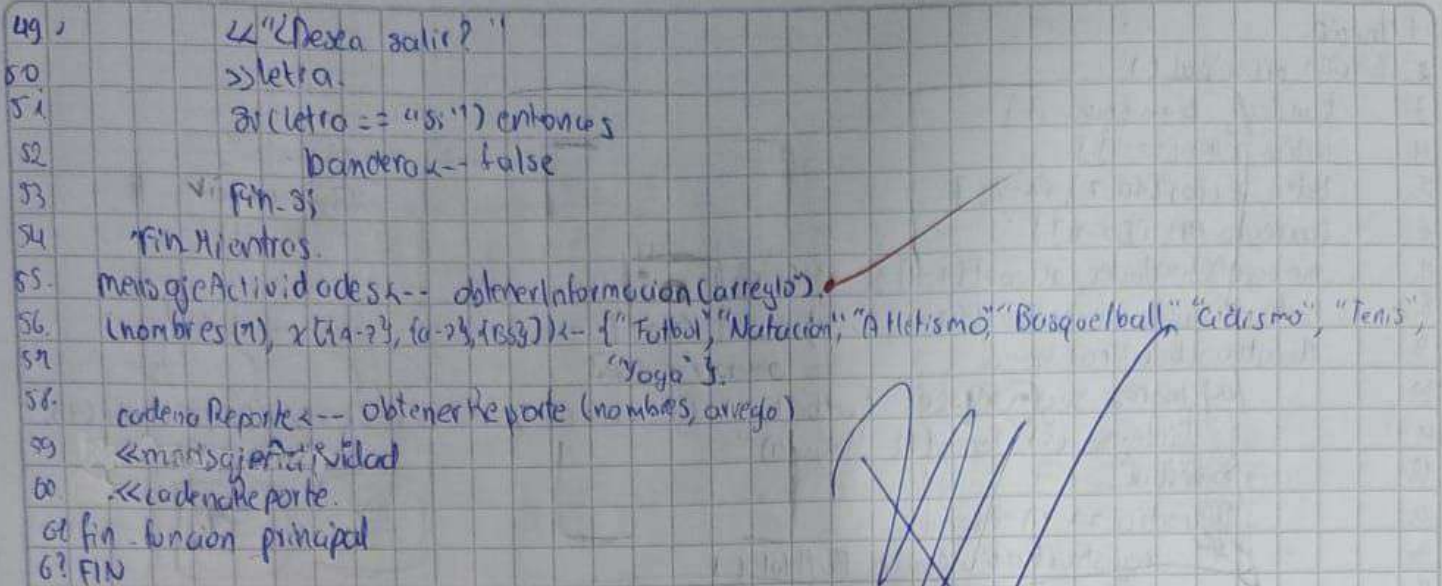 49. <<"¿Desea salir?"
50 >>letra.
51 Si(letra == "si") entonces
52 bandera<-- false
53 Fin-si
54 Fin Mientras.
55. mensajeActividades<-- obtenerInformacion(arreglo).
56. (nombres(7), <-- {"Futbol", "Natacion", "Atletismo", "Basquetball", "Ciclismo", "Tenis",
57 "Yoga"}.
58. cadenaReporte<-- obtenerReporte (nombres, arreglo)
59
60 <<cadenaReporte.
61 fin funcion principal
62 FIN